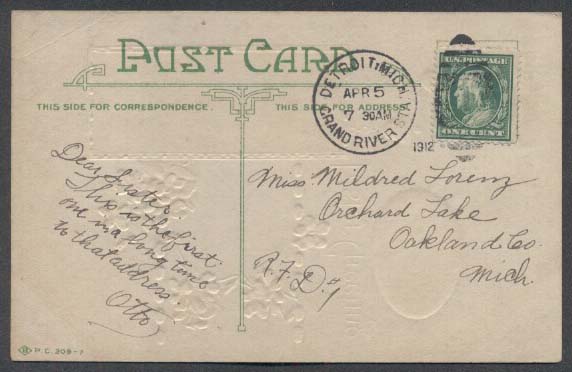 POST CARD
THIS SIDE FOR CORRESPONDENCE.
THIS SIDE FOR ADDRESS
DETROIT, MICH.
APR 5
7 30AM
GRAND RIVER STA.
1912
U.S. POSTAGE
ONE CENT
Dear Sister.
This is the first
one in a long time
to that address.
Otto
Miss Mildred Lorenz
Orchard Lake
Oakland Co.
Mich.
R.F.D. #1
P.C. 209-7